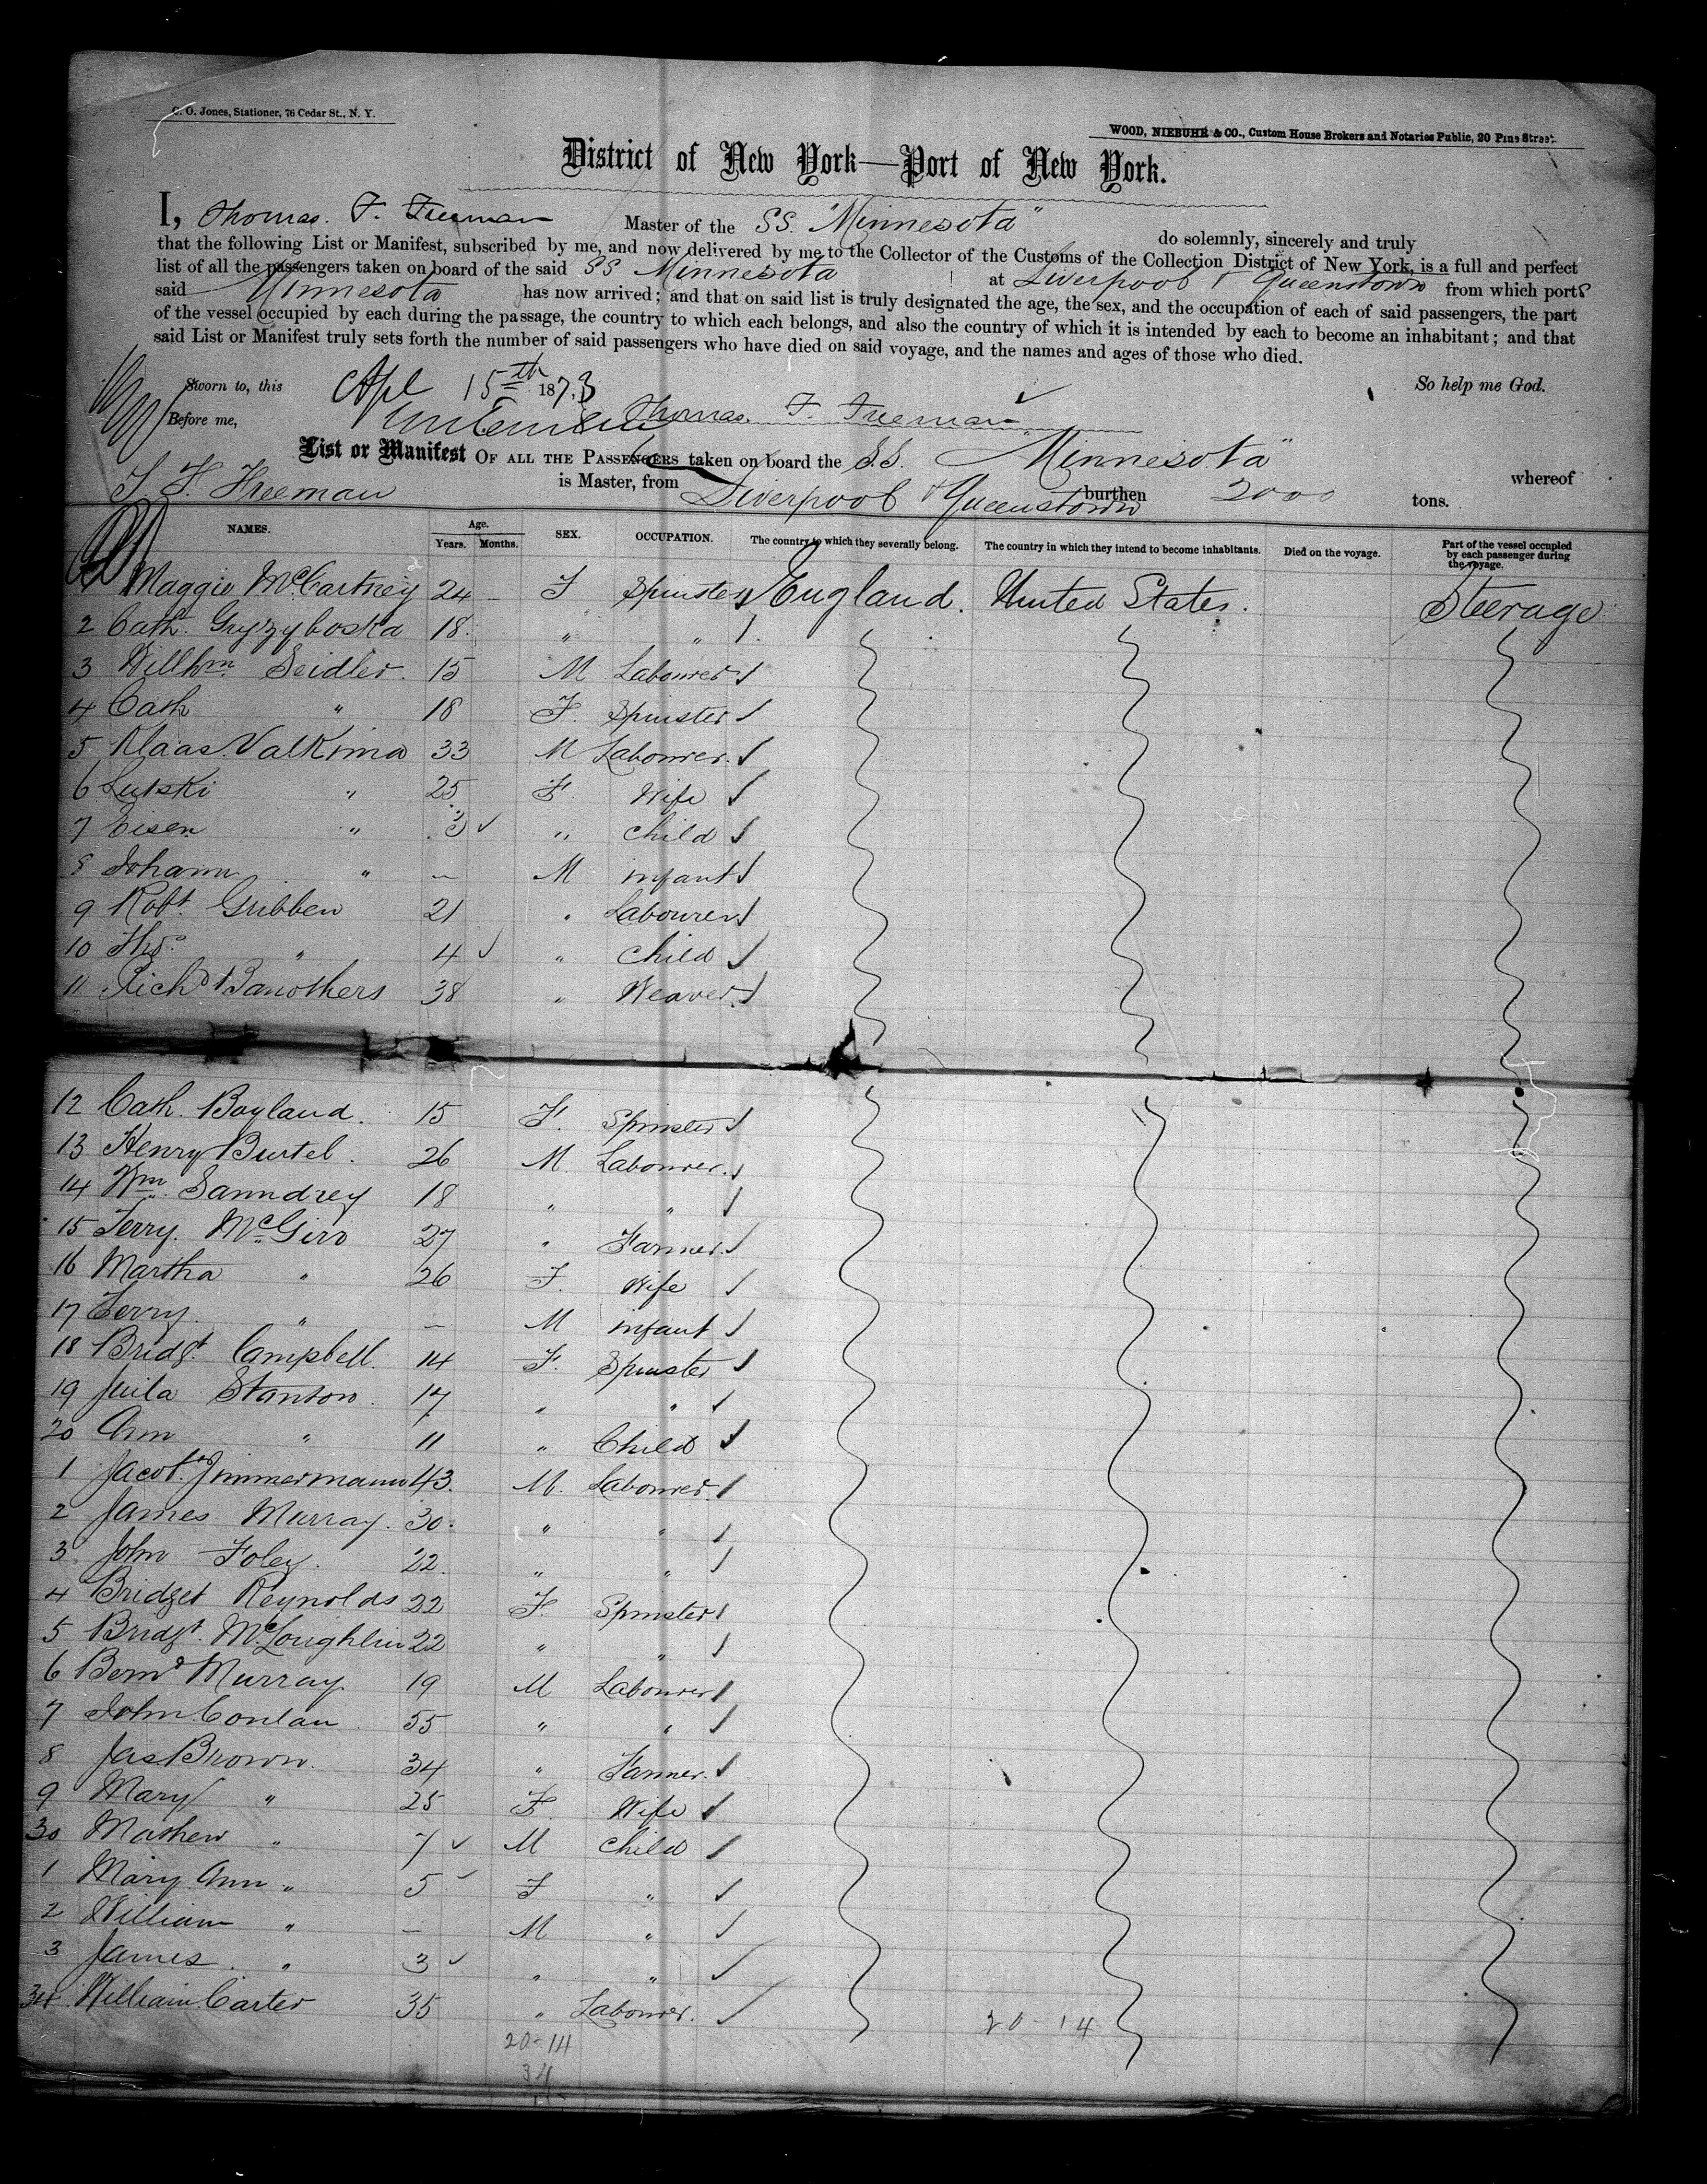 C. O. Jones, Stationer, 76 Cedar St., N. Y.
WOOD, NIEBUHR & CO., Custom House Brokers and Notaries Public, 20 Pine Street.
District of New York—Port of New York.
I, Thomas. F. Freeman Master of the SS. "Minnesota" do solemnly, sincerely and truly
that the following List or Manifest, subscribed by me, and now delivered by me to the Collector of the Customs of the Collection District of New York, is a full and perfect
list of all the passengers taken on board of the said SS Minnesota at Liverpool & Queenstown from which ports
said Minnesota has now arrived; and that on said list is truly designated the age, the sex, and the occupation of each of said passengers, the part
of the vessel occupied by each during the passage, the country to which each belongs, and also the country of which it is intended by each to become an inhabitant; and that
said List or Manifest truly sets forth the number of said passengers who have died on said voyage, and the names and ages of those who died.
Sworn to, this Apl 15th 1873 So help me God.
Before me, Thomas. F. Freeman
List or Manifest OF ALL THE PASSENGERS taken on board the S.S. Minnesota" whereof
T. F. Freeman is Master, from Liverpool & Queenstown burthen 2000 tons.
NAMES. Age. Years. Months. SEX. OCCUPATION. The country to which they severally belong. The country in which they intend to become inhabitants. Died on the voyage. Part of the vessel occupied by each passenger during the voyage.
Maggie McCartney 24 – F Spinster England. United States. Steerage
2 Cath. Gryzyboska 18. " "
3 Willhm. Seidler. 15 M Labourer
4 Cath " 18 F. Spinster
5 Klaas Valkima 33 M Labourer.
6 Lutski " 25 F. Wife
7 Eisen " 3 " child
8 Johann " – M infant
9 Robt. Gribben 21 " Labourer
10 Thos. " 4 " Child
11 Richd Banothers 38 " Weaver.
12 Cath. Boyland. 15 F. Spinster
13 Henry Burtel. 26 M. Labourer.
14 Wm. Sanndrey 18 " "
15 Terry. McGirr 27 " Farmer.
16 Martha " 26 F. Wife
17 Terry. " – M infant
18 Bridgt. Campbell. 14 F. Spinster
19 Juila Stanton. 17 " "
20 Ann " 11 " Child
1 Jacob Zimmermann 43. M. Labourer.
2 James Murray. 30. " "
3 John Foley. 22. " "
4 Bridget Reynolds 22 F. Spinster
5 Bridgt. McLoughlin 22 " "
6 Bernd Murray. 19 M Labourer
7 John Conlan 55 " "
8 Jas Brown. 34 " Farmer.
9 Mary " 25 F. Wife
30 Mathew " 7 M child
1 Mary Ann " 5 F "
2 William " – M "
3 James. " 3 " "
34 William Carter 35 " Labourer.
20-14 20-14
34